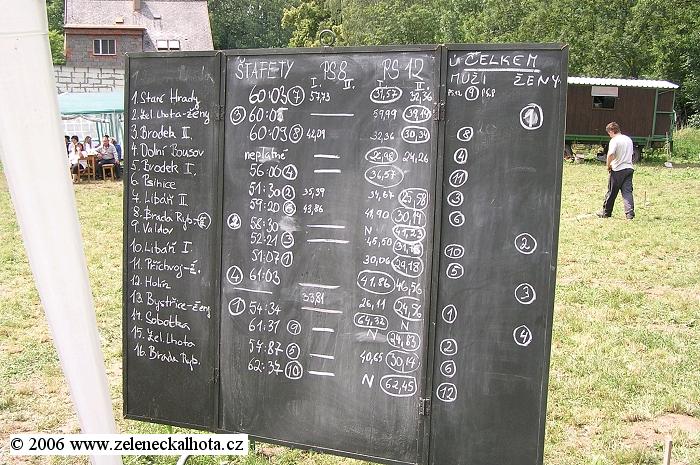 ŠTAFETY PS8 PS12 CELKEM
I. II. I. II. MUŽI ŽENY
PS12 9 PS8
1. Staré Hrady 60:03 7 57,73 31,57 32,36
2. Žel. Lhota-ženy 3 60:08 59,99 39,19 1
3. Brodek II. 60:09 8 42,09 32,36 30,34 8
4. Dolní Bousov neplatné 26,98 24,26 4
5. Brodek I. 56:06 4 36,57 11
6. Pšinice 51:30 2 35,39 34,67 25,58 3
7. Libáň II 59:20 43,86 41,90 30,14 6
8. Brada Ryb.-ž 2 58:30 N 41,23 2
9. Valdov 52:21 3 45,50 10
10. Libáň I. 51:07 1 30,06 29,18 5
11. Příchvoj-ž. 4 61:03 41,86 46,56 3
12. Holín 33,81 26,11 24,56 1
13. Bystřice-ženy 1 54:34 64,32 N 4
14. Sobotka 61:31 9 N 24,83 2
15. Žel. Lhota 54:87 5 40,65 30,14 6
16. Brada Ryb. 62:37 10 N 62,45 12
© 2006 www.zeleneckalhota.cz